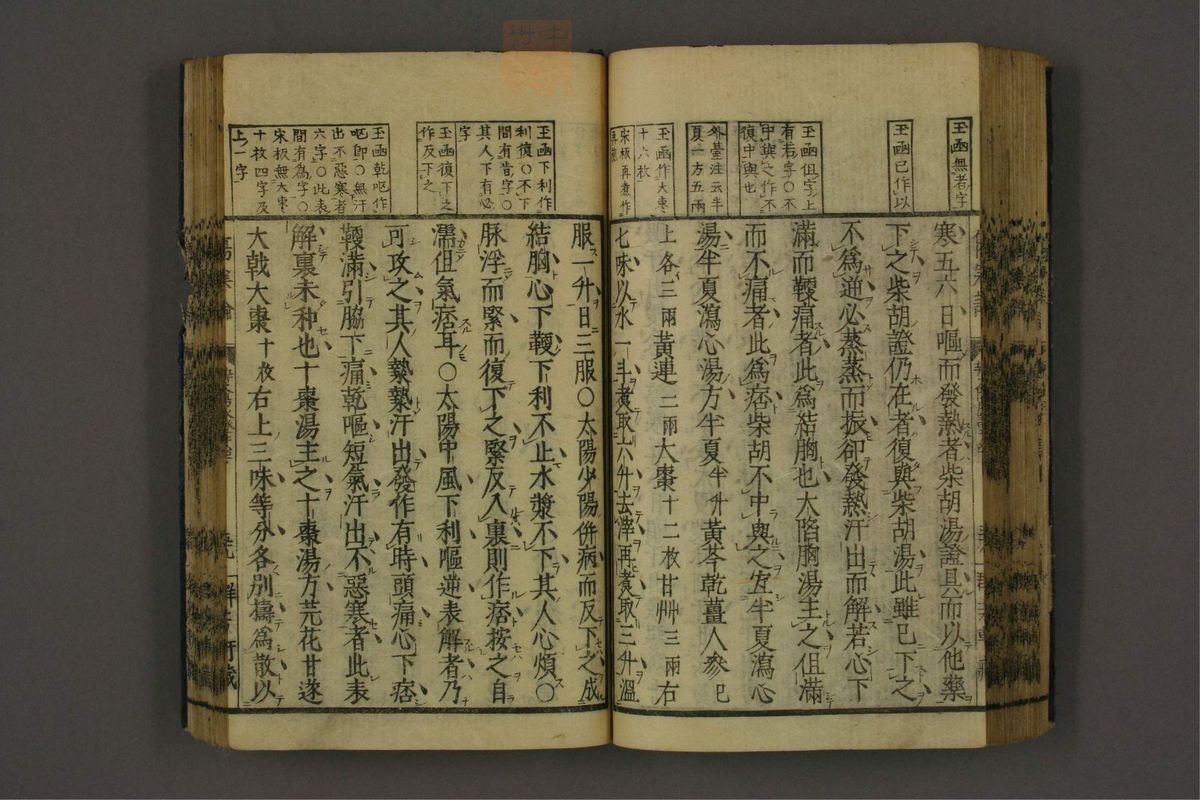 玉函無者字
玉函已作以
玉函但字上
有若字○不
中與之作不
復中與也
外臺注云半
夏一方五兩
玉函作大棗
十六枚
宋板再煮作
寒五六日嘔而發熱者柴胡湯證具而以他藥
下之柴胡證仍在者復與柴胡湯此雖已下之
不爲逆必蒸蒸而振卻發熱汗出而解若心下
滿而鞕痛者此爲結胸也大陷胸湯主之但滿
而不痛者此爲痞柴胡不中與之宜半夏瀉心
湯半夏瀉心湯方半夏半升黃芩乾薑人參已
上各三兩黃連二兩大棗十二枚甘艸三兩右
七味以水一斗煮取六升去滓再煮取三升溫
玉函下利作
利復○不下
間有皆字○
其人下有必
字
玉函復下之
作反下之
玉函乾嘔作
嘔卽○無汗
出不惡寒者
六字○此表
間有爲字○
宋板無大棗
十枚四字及
上一字
服一升日三服○太陽少陽併病而反下之成
結胸心下鞕下利不止水漿不下其人心煩○
脈浮而緊而復下之緊反入裏則作痞按之自
濡但氣痞耳○太陽中風下利嘔逆表解者乃
可攻之其人漐漐汗出發作有時頭痛心下痞
鞕滿引脇下痛乾嘔短氣汗出不惡寒者此表
解裏未和也十棗湯主之十棗湯方芫花甘遂
大戟大棗十枚右上三味等分各別擣爲散以